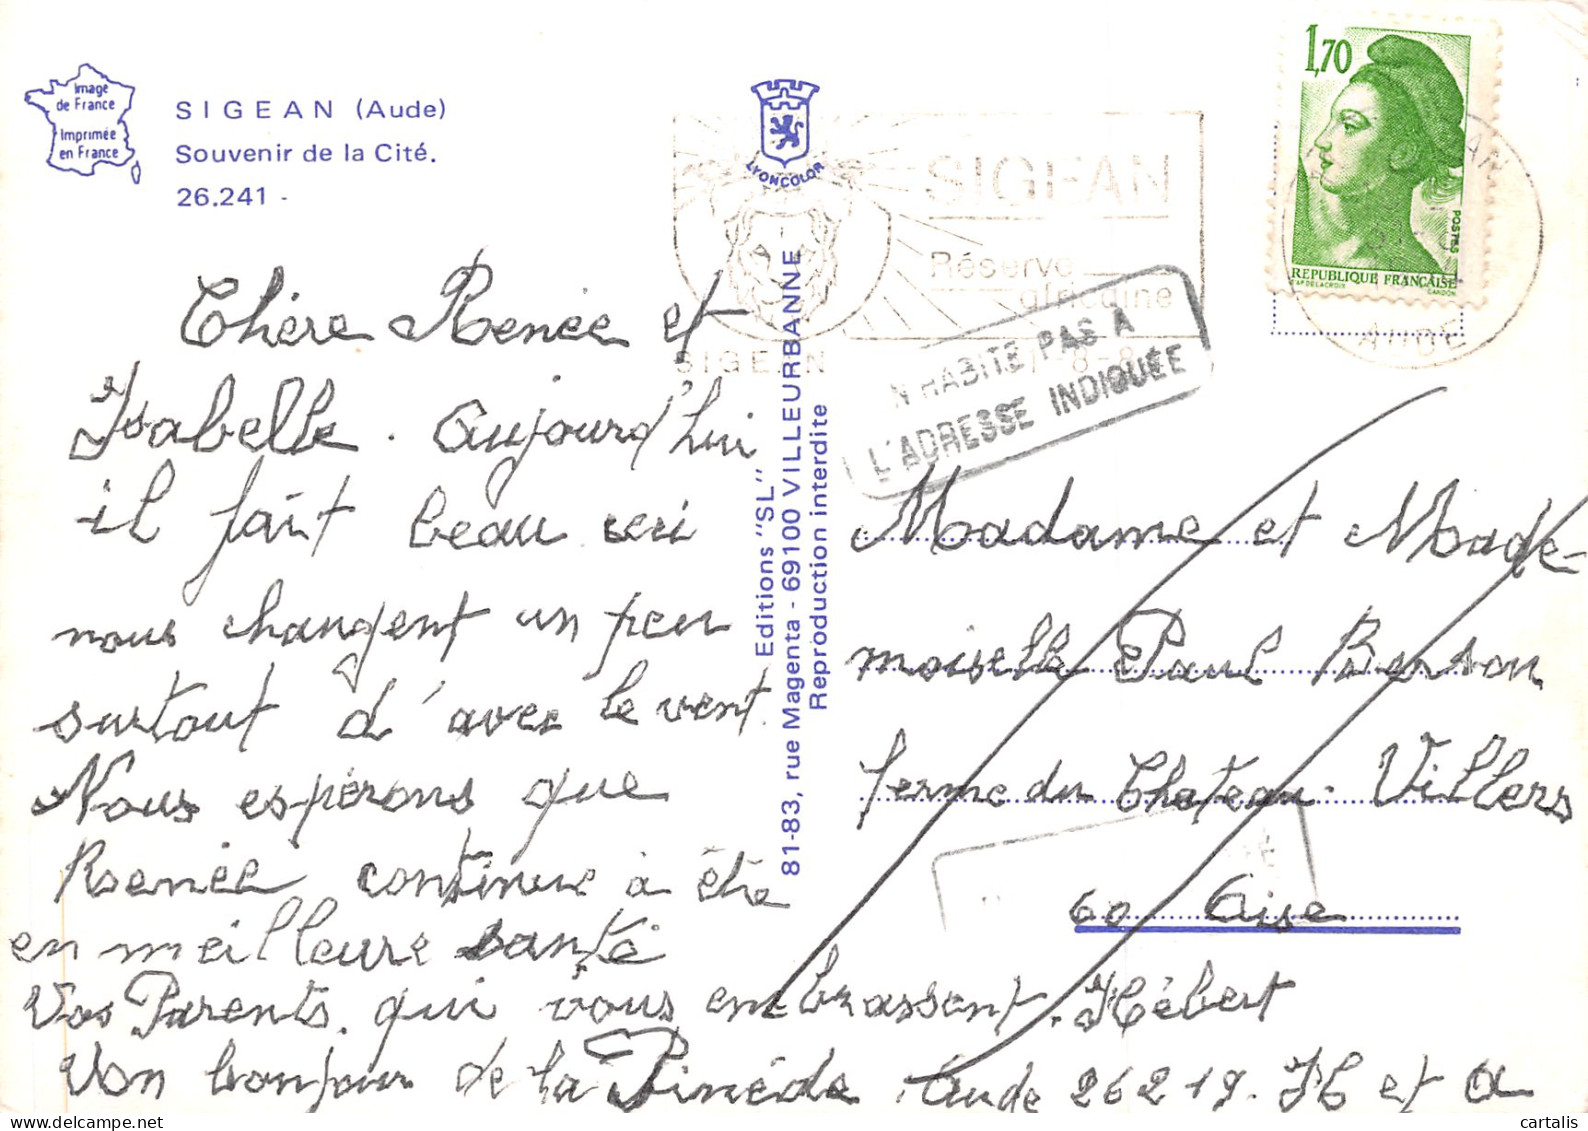 Image
de France
Imprimée
en France
SIGEAN (Aude)
Souvenir de la Cité.
26.241 -
LYONCOLOR
SIGEAN
Réserve
africaine
SIGEAN
1,70
POSTES
REPUBLIQUE FRANÇAISE
D'AP DELACROIX GANDON
AUDE
N'HABITE PAS A
L'ADRESSE INDIQUÉE
Chère Renée et
Isabelle. Aujourd'hui
il fait beau ceci
nous changent un peu
surtout d'avec le vent.
Nous espérons que
Renée continue à être
en meilleure santé
Vos Parents. qui vous embrassent. Hébert
Un bonjour de la Pinéde Aude 26219. H et A
Editions "SL"
81-83, rue Magenta - 69100 VILLEURBANNE
Reproduction interdite
Madame et Made-
moiselle Paul Berson
ferme du Chateau Villers
60 Oise
cartalis
delcampe.net